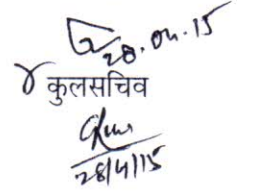 28.04.15
कुलसचिव
28/4/15